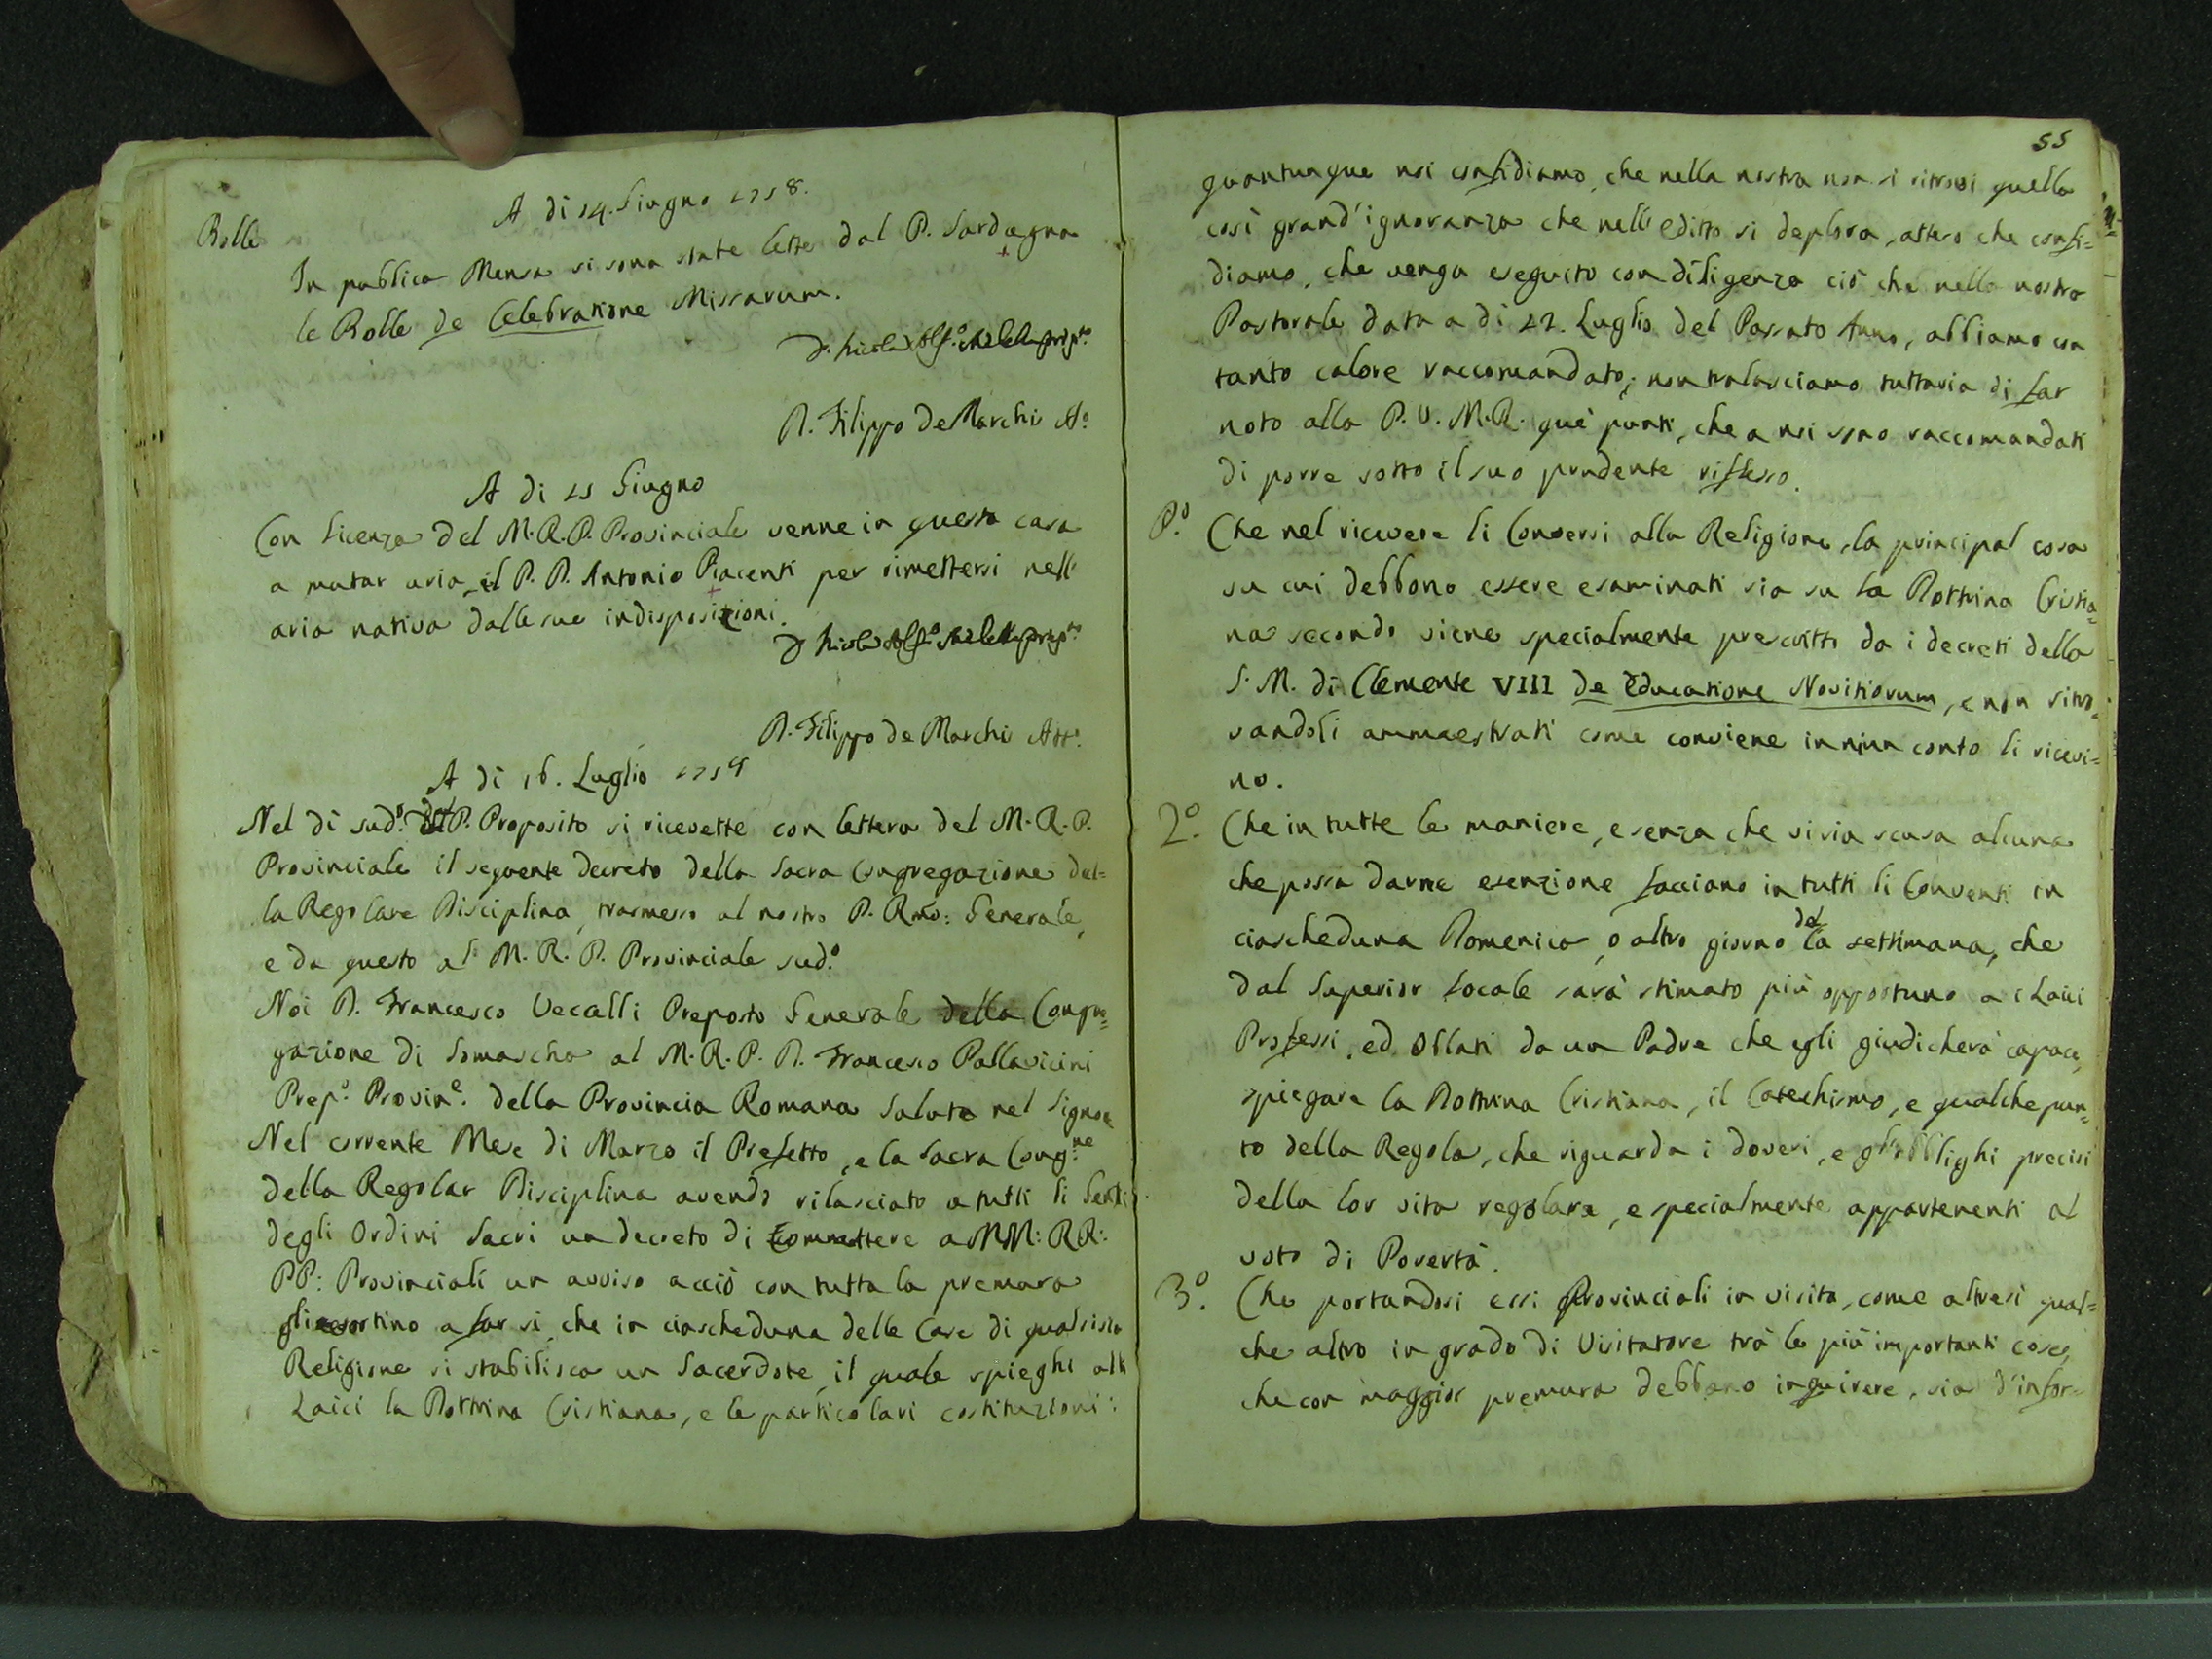 A di 14. Giugno 1758.
Bolle
In publica Mensa si sono state lette dal P. Sardagna
le Bolle de Celebratione Missarum.
D. Filippo De Marchi At.o
A di 25 Giugno
Con licenza del M.R.P. Provinciale venne in questa casa
a mutar aria il P. D. Antonio Piacenti per rimettersi nell'
aria nativa dalle sue indisposizioni.
D. Filippo de Marchi Att.o
A di 16. Luglio 1758
Nel di sud.o dal P. Proposito si ricevette con lettera del M.R.P.
Provinciale il seguente decreto della Sacra Congregazione del=
la Regolare Disciplina, trasmesso al nostro P. Rmo: Generale,
e da questo al M.R.P. Provinciale sud.o
Noi D. Francesco Vecelli Preposto Generale della Congre=
gazione di Somascha al M.R.P. D. Francesco Pallavicini
Prep.o Provin.e della Provincia Romana Salute nel Signore
Nel corrente Mese di Marzo il Prefetto, e la Sacra Cong.ne
della Regolar Disciplina avendo rilasciato a tutti li Genli
degli Ordini Sacri un decreto di Commettere a MM: RR:
PP: Provinciali un avviso acciò con tutta la premura
gli esortino a far si che in ciascheduna delle Case di qualsisia
Religione si stabilisca un Sacerdote il quale spieghi alli
Laici la Dottrina Cristiana, e le particolari costituzioni:
55
quantunque noi confidiamo, che nella nostra non si ritrovi quella
così grand' ignoranza che nell' editto si deplora, atteso che confi=
diamo, che venga eseguito con diligenza ciò che nella nostra
Pastorale data a di 22. Luglio del Passato Anno, abbiamo con
tanto calore raccomandato; non tralasciamo tuttavia di far
noto alla P. V. M.R. que' punti, che a noi sono raccomandati
di porre sotto il suo prudente riflesso.
P.o Che nel ricevere li Conversi alla Religione, la principal cosa
su cui debbono essere esaminati sia su la Dottrina Cristia=
na secondo viene specialmente prescritto da i decreti della
S. M. di Clemente VIII de Educatione Novitiorum, e non ritro=
vandoli ammaestrati come conviene in niun conto li ricevi=
no.
2.o Che in tutte le maniere, e senza che vi sia scusa alcuna
che possa darne esenzione facciano in tutti li Conventi in
ciascheduna Domenica, o altro giorno della settimana, che
dal Superior Locale sarà stimato più opportuno a i Laici
Professi, ed Oblati da un Padre che egli giudicherà capace
spiegare la Dottrina Cristiana, il Catechismo, e qualche pun=
to della Regola, che riguarda i doveri, e gl'obblighi precisi
della lor vita regolare, e specialmente appartenenti al
voto di Povertà.
3.o Che portandosi essi Provinciali in visita, come altresì qual=
che altro in grado di Visitatore trà le più importanti cose
che con maggior premura debbano inquirere, sia d'infor=